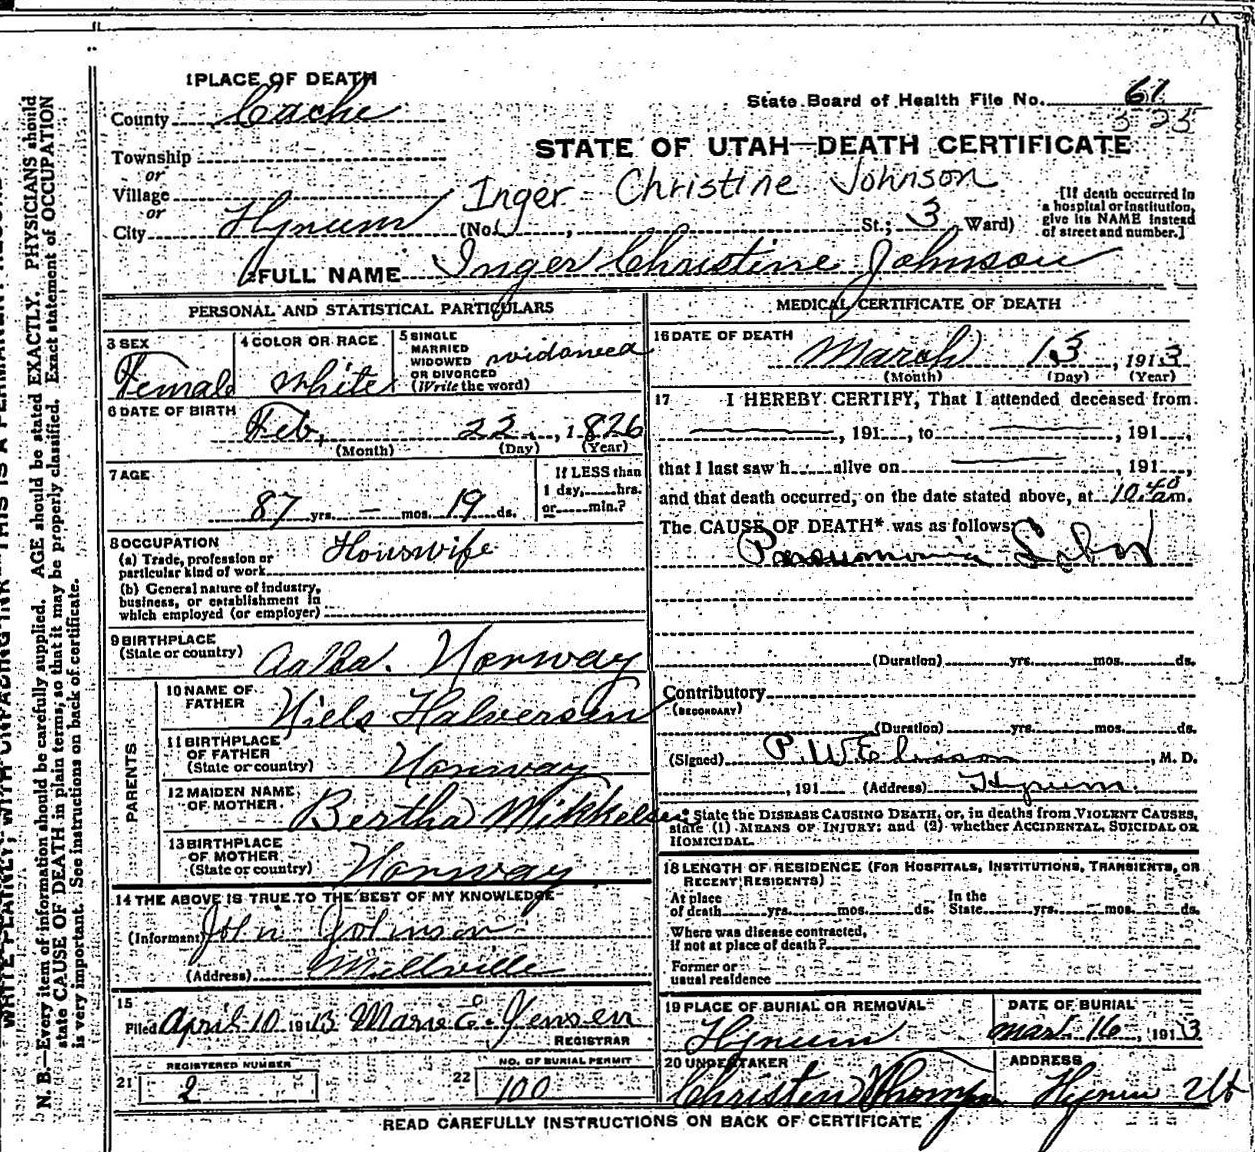 1 PLACE OF DEATH
County Cache
State Board of Health File No. 61
323
STATE OF UTAH—DEATH CERTIFICATE
Township
or
Village
or
City Hyrum (No. , St.; 3 Ward)
Inger Christine Johnson
[If death occurred in
a hospital or institution,
give its NAME instead
of street and number.]
FULL NAME Inger Christine Johnson
PERSONAL AND STATISTICAL PARTICULARS
3 SEX Female
4 COLOR OR RACE White
5 SINGLE
MARRIED
WIDOWED
OR DIVORCED
(Write the word) widowed
6 DATE OF BIRTH Feb. 22, 1826
(Month) (Day) (Year)
7 AGE
87 yrs. — mos. 19 ds.
If LESS than
1 day, hrs.
or min.?
8 OCCUPATION Houswife
(a) Trade, profession or
particular kind of work
(b) General nature of industry,
business, or establishment in
which employed (or employer)
9 BIRTHPLACE
(State or country) Norway
PARENTS
10 NAME OF
FATHER Niels Halversen
11 BIRTHPLACE
OF FATHER
(State or country) Norway
12 MAIDEN NAME
OF MOTHER Bertha Mikkelsen
13 BIRTHPLACE
OF MOTHER
(State or country) Norway
14 THE ABOVE IS TRUE TO THE BEST OF MY KNOWLEDGE
(Informant) John Johnson
(Address) Millville
15
Filed April 10 1913 Marie E. Jensen
REGISTRAR
21 REGISTERED NUMBER
2
22 NO. OF BURIAL PERMIT
100
MEDICAL CERTIFICATE OF DEATH
16 DATE OF DEATH
March 13, 1913
(Month) (Day) (Year)
17 I HEREBY CERTIFY, That I attended deceased from
, 191 , to , 191 ,
that I last saw h alive on , 191 ,
and that death occurred, on the date stated above, at 10.40 am.
The CAUSE OF DEATH* was as follows:
Pneumonia
(Duration) yrs. mos. ds.
Contributory
(SECONDARY)
(Duration) yrs. mos. ds.
(Signed) P. W. , M. D.
, 191 (Address) Hyrum
* State the DISEASE CAUSING DEATH, or, in deaths from VIOLENT CAUSES,
state (1) MEANS OF INJURY; and (2) whether ACCIDENTAL, SUICIDAL OR
HOMICIDAL.
18 LENGTH OF RESIDENCE (FOR HOSPITALS, INSTITUTIONS, TRANSIENTS, OR
RECENT RESIDENTS)
At place
of death yrs. mos. ds. In the
State yrs. mos. ds.
Where was disease contracted,
if not at place of death?
Former or
usual residence
19 PLACE OF BURIAL OR REMOVAL
Hyrum
DATE OF BURIAL
Mar 16, 1913
20 UNDERTAKER
Christen
ADDRESS
Hyrum Ut
READ CAREFULLY INSTRUCTIONS ON BACK OF CERTIFICATE
N. B.—Every item of information should be carefully supplied. AGE should be stated EXACTLY. PHYSICIANS should
state CAUSE OF DEATH in plain terms, so that it may be properly classified. Exact statement of OCCUPATION
is very important. See instructions on back of certificate.